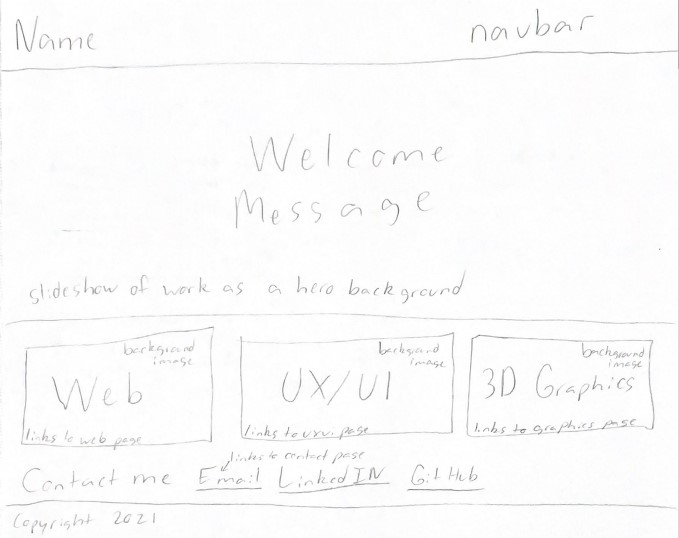 Name navbar
Welcome
Message
slideshow of work as a hero background
background
image
Web
links to web page
background
image
UX/UI
links to uxui page
background
image
3D Graphics
links to graphics page
links to contact page
Contact me Email LinkedIN GitHub
Copyright 2021